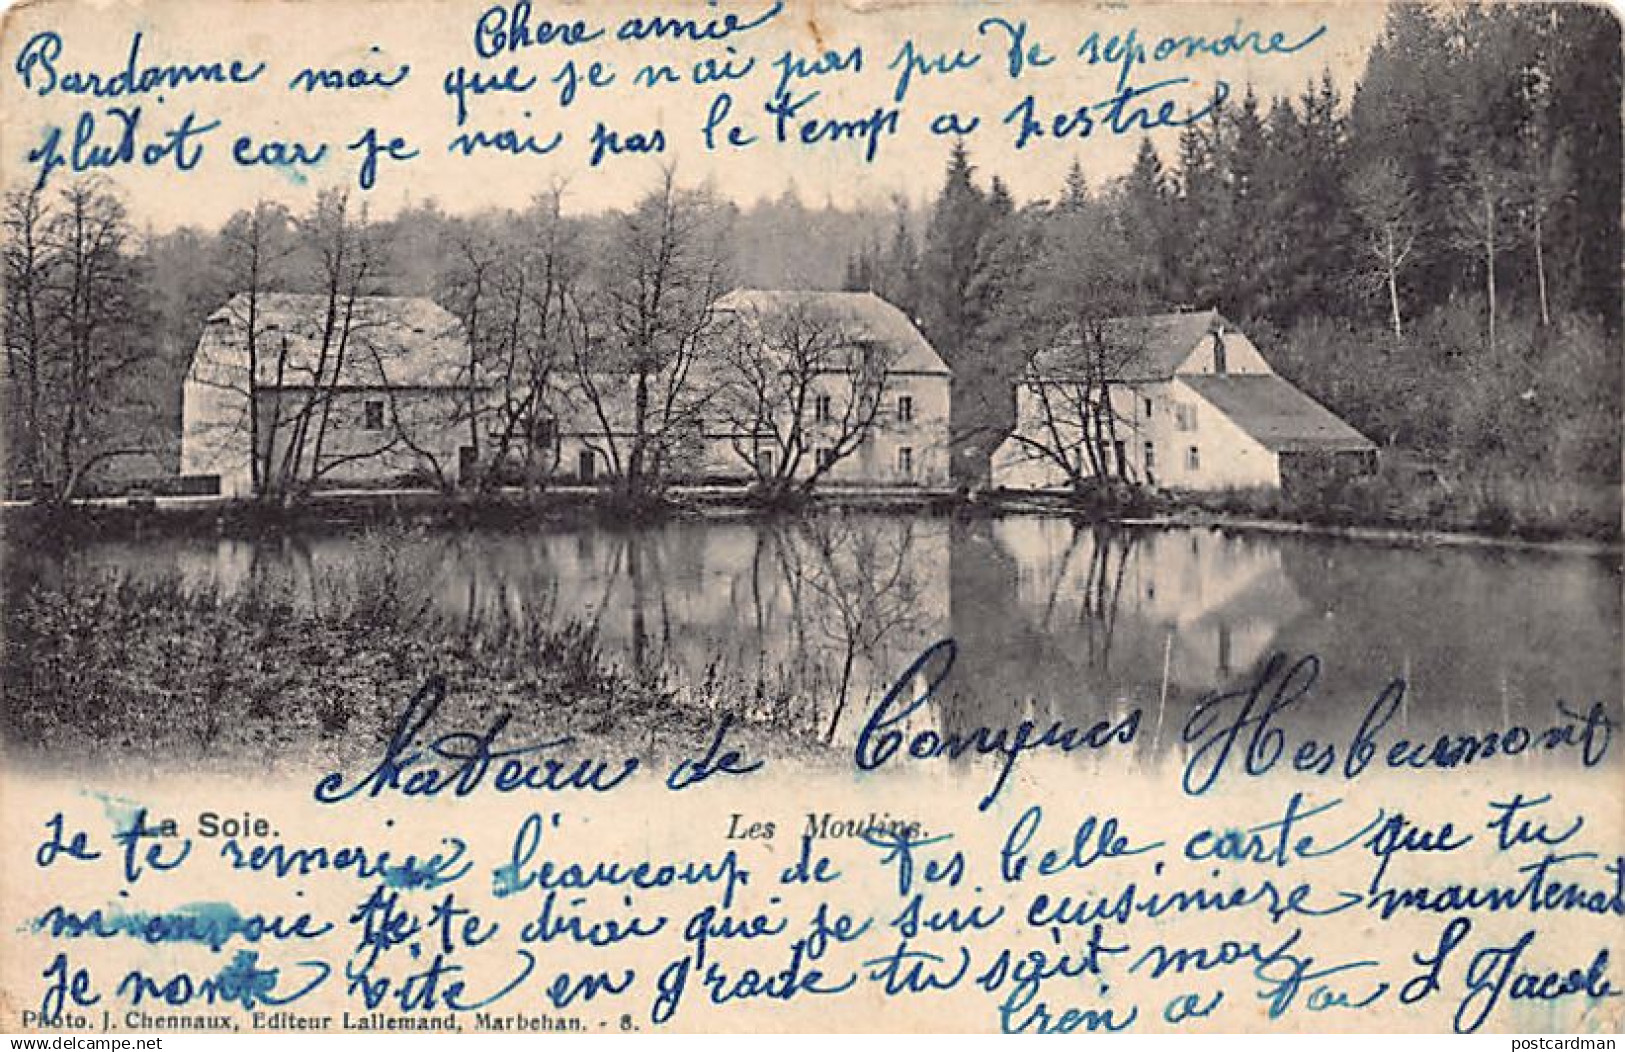 Chere amie
Pardonne moi que je n'ai pas pu te repondre
plutot car je nai pas le temp a pestre
chateau de Conques Herbeumont
La Soie. Les Moulins.
Je te remerci beaucoup de tes belle carte que tu
m'envoie Je te dirai que je sui cuisiniere maintenat
Je monte vite en grade tu sait moi
bien a toi L Jacob
Photo. J. Chennaux, Editeur Lallemand, Marbehan. - 8.
delcampe.net
postcardman